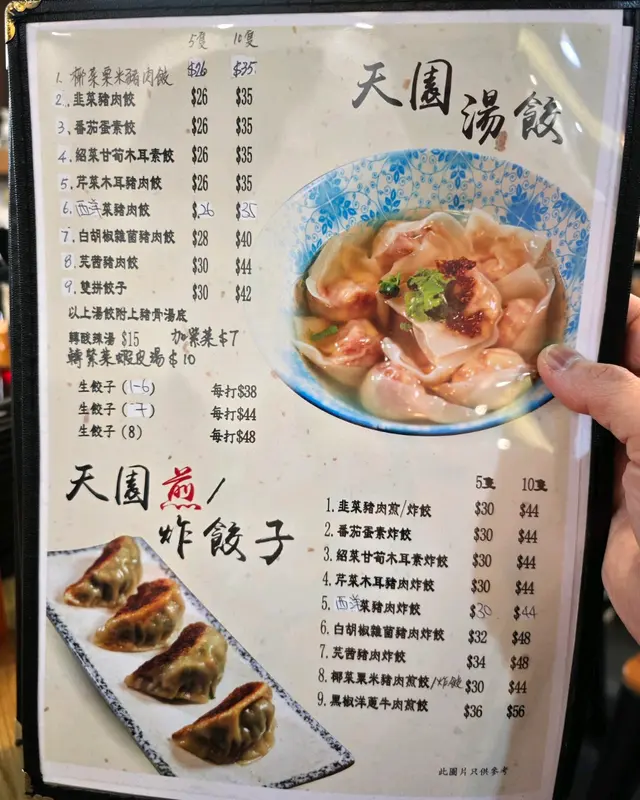 天園湯餃
5隻 10隻
1. 椰菜粟米豬肉餃 $26 $35
2. 韭菜豬肉餃 $26 $35
3. 番茄蛋素餃 $26 $35
4. 紹菜甘荀木耳素餃 $26 $35
5. 芹菜木耳豬肉餃 $26 $35
6. 西洋菜豬肉餃 $26 $35
7. 白胡椒雜菌豬肉餃 $28 $40
8. 芫茜豬肉餃 $30 $44
9. 雙拼餃子 $30 $42
以上湯餃附上豬骨湯底
轉酸辣湯 $15 加紫菜$7
轉紫菜蝦皮湯$10
生餃子 (1-6) 每打$38
生餃子 (7) 每打$44
生餃子 (8) 每打$48
天園煎/
炸餃子
5隻 10隻
1. 韭菜豬肉煎/炸餃 $30 $44
2. 番茄蛋素炸餃 $30 $44
3. 紹菜甘荀木耳素炸餃 $30 $44
4. 芹菜木耳豬肉炸餃 $30 $44
5. 西洋菜豬肉炸餃 $30 $44
6. 白胡椒雜菌豬肉炸餃 $32 $48
7. 芫茜豬肉炸餃 $34 $48
8. 椰菜粟米豬肉煎餃/炸餃 $30 $44
9. 黑椒洋蔥牛肉煎餃 $36 $56
此圖片只供參考